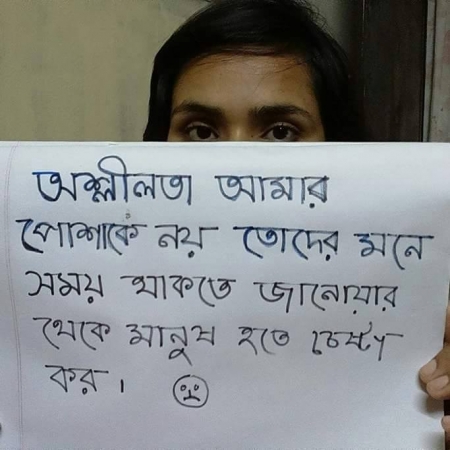 অশ্লীলতা আমার
পোশাকে নয় তোদের মনে
সময় থাকতে জানোয়ার
থেকে মানুষ হতে চেষ্টা
কর।